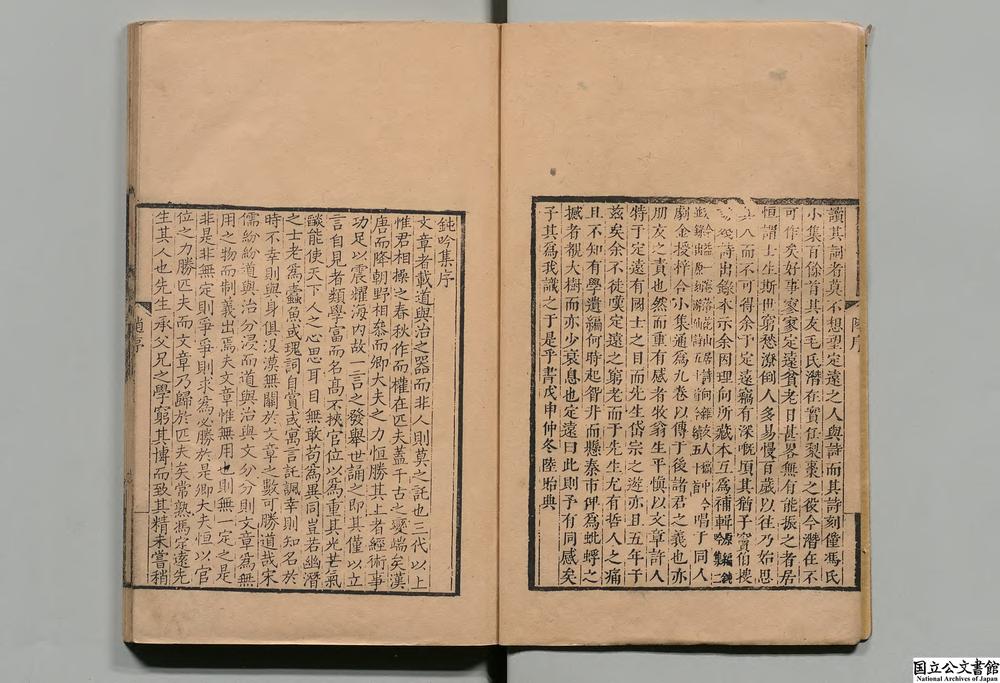 讀其詞者莫不想望定遠之人與詩而其詩刻僅馮氏
小集百餘首其友毛氏潛在實任裂棗之役今潛在不
可作矣好事家定遠貧老日甚畧無有能振之者居
恒謂士生斯世窮愁潦倒人多易慢百歲以往乃始思
八而不可得余于定遠竊有深嘅頃其猶子竇伯搜
詩出錄本示余因理向所藏本互為補輯
唱于同人
劂金授梓合小集通為九卷以傳于後諸君之義也亦
朋友之責也然而重有感者牧翁生平慎以文章許人
特于定遠有國士之目而先生岱宗之遊亦且五年于
茲矣余不徒嘆定遠之窮老而于先生尤有哲人之痛
且不知有學遺編何時起智井而懸泰市俾為蚍蜉之
撼者覩大樹而亦少衰息也定遠曰此則予有同感矣
子其為我識之于是乎書戊申仲冬陸貽典
陸序
鈍吟集序
文章者載道與治之器而非人則莫之託也三代以上
惟君相操之春秋作而權在匹夫蓋千古之變端矣漢
唐而降朝野相叅而卿大夫之力恒勝其上者經術事
功足以震耀海内故一言之發舉世誦之即其僅以立
言自見者類學富而名高不挾官位以為重其光芒氣
燄能使天下人之心思耳目無敢苟為異同豈若幽潛
之士老為蠹魚或瑰詞自賞或寓言託諷幸則知名於
時不幸則與身俱没漠無關於文章之數可勝道哉宋
儒紛紛道與治分浸而道與治與文分分則文章為無
用之物而制義出焉夫文章惟無用也則無一定之是
非是非無定則爭爭則求為必勝於是卿大夫恒以官
位之力勝匹夫而文章乃歸於匹夫矣常熟馮定遠先
生其人也先生承父兄之學窮其博而致其精未嘗稍